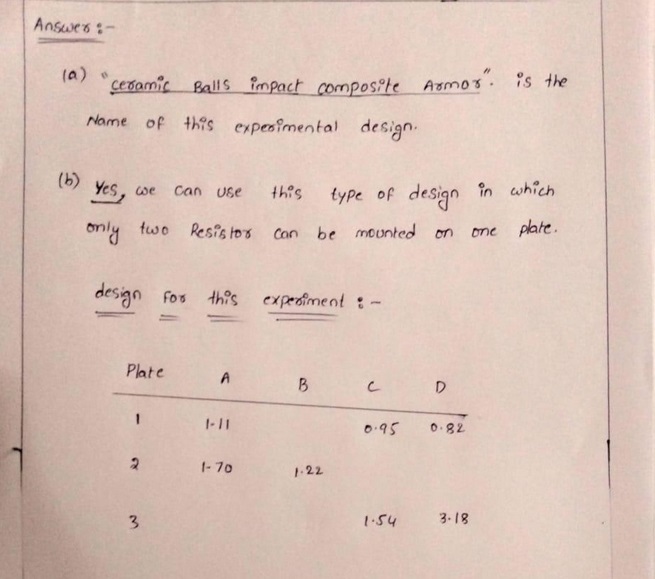 Answer :-
(a) "ceramic Balls impact composite Armor". is the
Name of this experimental design.
(b) Yes, we can use this type of design in which
only two Resistor can be mounted on one plate.
design for this experiment :-
Plate A B C D
1 1.11 0.95 0.82
2 1.70 1.22
3 1.54 3.18